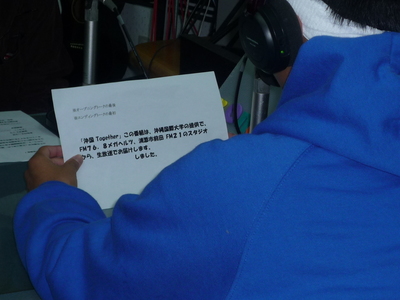 「沖国 Together」この番組は、沖縄国際大学の提供で、
FM76.8メガヘルツ、浦添市前田 FM21のスタジオ
から、生放送でお届けします。
しました。